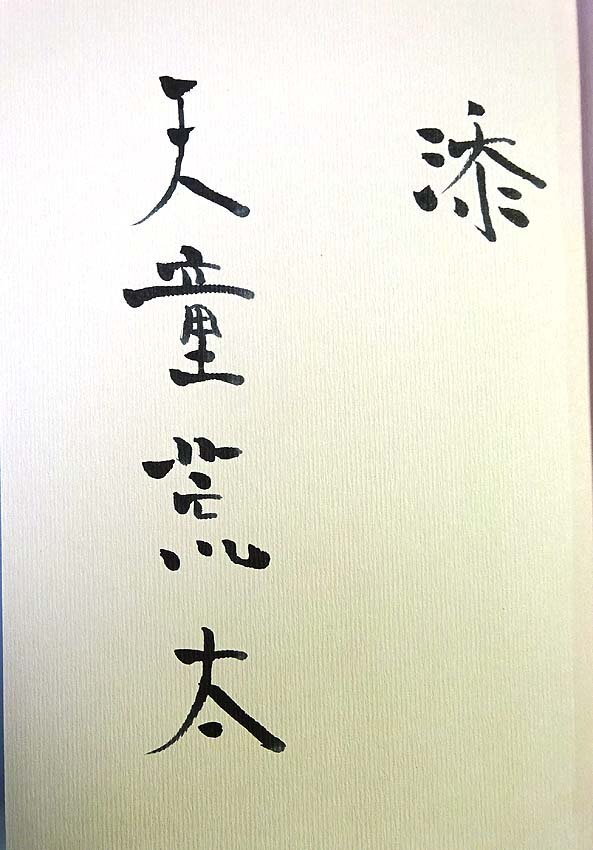 添
天童荒太